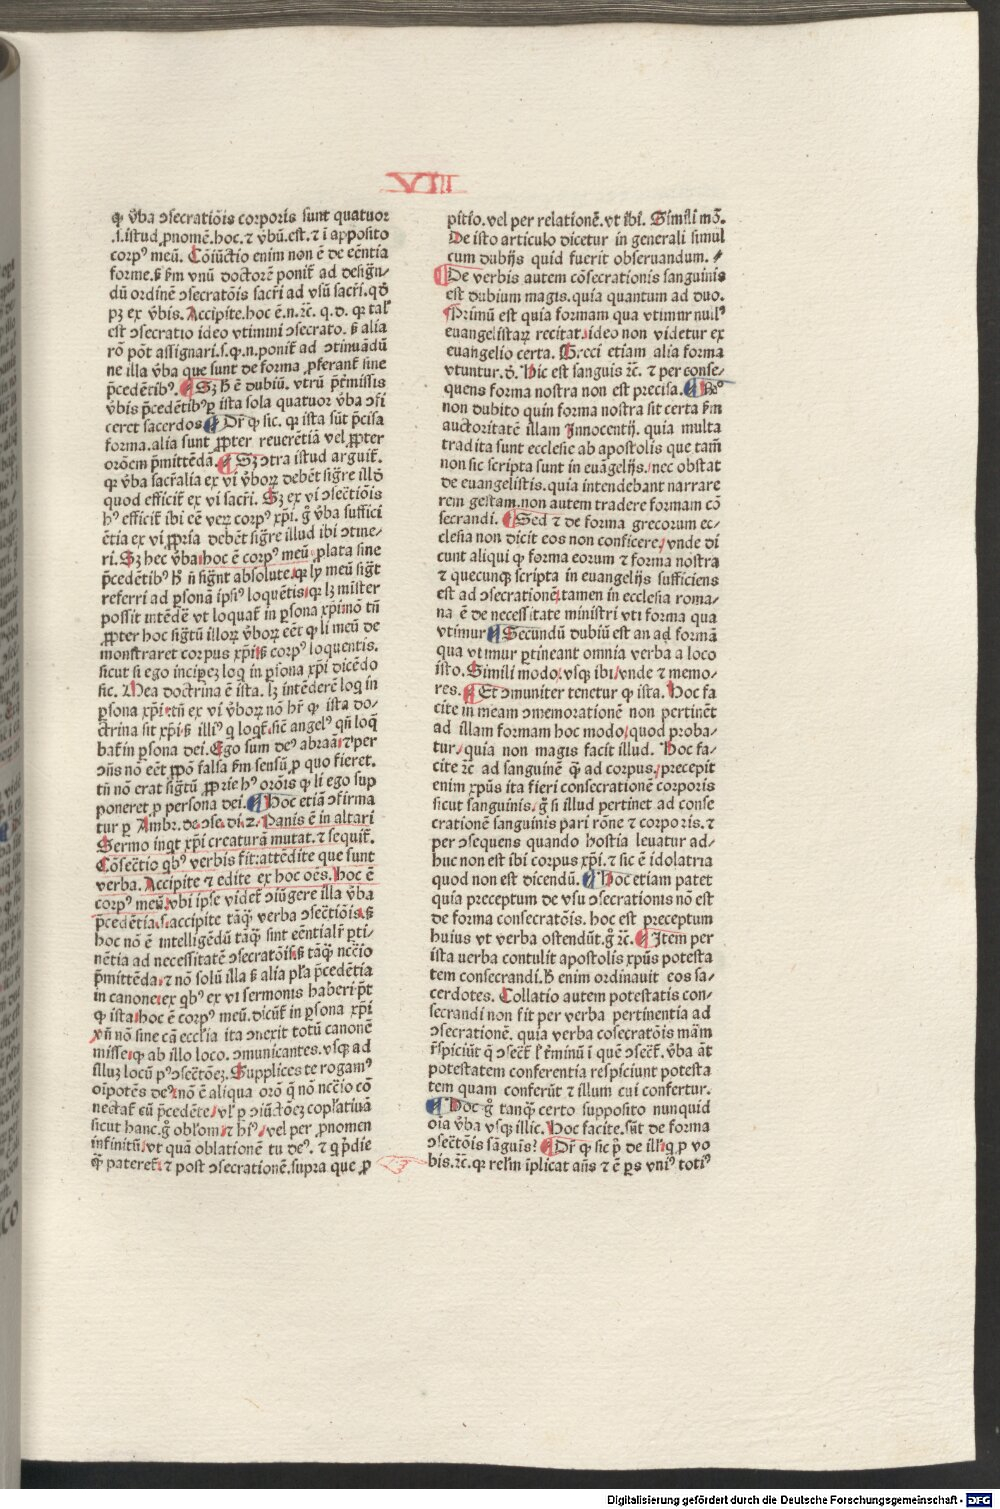 VIII
ꝙ v̄ba ɔsecratiōis corporis sunt quatuor
.s.istud ꝓnomē.hoc.⁊ v̄bū.est.⁊ ī apposito
corpꝰ meū. Cōiūctio enim non ē de eēntia
forme.ꝫ ẜm vnū doctorē ponit̄ ad desigñ-
dū ordinē ɔsecratōis sacr̄i ad vsū sacr̄i.qđ
pꝫ ex v̄bis.Accipite.hoc ē.n.⁊c̄. q.d. qꝛ tal̓
est ɔsecratio ideo vtimini ɔsecrato. ꝫ alia
rō pōt assignari.s.ꝙ.n.ponit̄ ad ɔtinuādū
ne illa v̄ba que sunt de forma ꝓferant̄ sine
p̄cedētibꝰ. Sꝫ h̄ ē dubiū. vtrū p̄t̄missis
v̄bis p̄cedētibꝰ ꝑ ista sola quatuor v̄ba ɔfi
ceret sacerdos Dr̄ ꝙ sic. qꝛ ista sūt p̄cisa
forma.alia sunt ꝓpter reuerētiā vel ꝓpter
orōem p̄mittēda. Sꝫ ɔtra istud arguit̄.
qꝛ v̄ba sacr̄alia ex vi v̄boꝝ debēt sigr̄e illđ
quod efficit̄ ex vi sacr̄i. Sꝫ ex vi ɔsec̄tiōis
hꝰ efficit̄ ibi eē veꝝ corpꝰ xp̄i. g̊ v̄ba suffici
ētia ex vi ꝓpria debēt sigr̄e illud ibi ɔtine-
ri. Sꝫ hec v̄ba hoc ē corpꝰ meū ꝓlata sine
p̄cedētibꝰ h̄ n̄ sigñt absolute.qꝛ ly meū sigt̄
referri ad ꝑsonā ipsiꝰ loquētis.qꝛ lꝫ mister
possit intēdē vt loquat̄ in ꝑsona xp̄i nō tn̄
ꝓpter hoc sigt̄ū illoꝝ v̄boꝝ eēt ꝙ li meū de
monstraret corpus xp̄i.ꝫ corpꝰ loquentis.
sicut si ego incipeꝫ loq in ꝑsona xp̄i dicēdo
sic. Mea doctrina ē ista. lꝫ intēderē loq in
ꝑsona xp̄i.tn̄ ex vi v̄boꝝ nō hr̄ ꝙ ista do-
ctrina sit xp̄i.ꝫ illiꝰ q̇ loqt̄.sic̄ angelꝰ qn̄ loq̄
bat̄ in ꝑsona dei. Ego sum deꝰ abraā.⁊ꝰper
ɔn̄s nō eēt ꝓpō falsa ẜm sensū ꝑ quo fieret.
tn̄ nō erat sigt̄ū ꝓprie hꝰ orōis ꝙ li ego sup
poneret ꝑ persona dei. Hoc etiā ɔfirma
tur ꝑ Ambr.de ɔse.di.2. Panis ē in altari
Sermo inqt xp̄i creaturā mutat.⁊ sequit̄.
Cōsec̄tio qbꝰ verbis fit:attēdite que sunt
verba. Accipite ⁊ edite ex hoc oēs.hoc ē
corpꝰ meū.vbi ipse videt̄ ɔiūgere illa v̄ba
p̄cedētia.s.accipite tāq̄ verba ɔsec̄tiōis.ꝫ
hoc nō ē intelligēdū tāq̄ sint eēntialr̄ ꝑti-
nētia ad necessitatē ɔsecratōis.ꝫ tāq̄ ncc̄io
p̄mittēda.⁊ nō solū illa ꝫ alia pl̄a p̄cedētia
in canone.ex qbꝰ ex vi sermonis haberi p̄t
ꝙ ista hoc ē corpꝰ meū.dicūt̄ in ꝑsona xp̄i
vn̄ nō sine cā eccl̄ia ita ɔnexit totū canonē
misse.ꝙ ab illo loco. ɔmunicantes.vsqꝫ ad
illuꝫ locū pꝰ ɔsec̄tōeꝫ. Supplices te rogamꝰ
oīpotēs deꝰ.nō ē aliqua orō q̄ nō ncc̄io cō
nectat̄ cū p̄cedēte.vl̓ ꝑ ɔiūctōeꝫ copl̄atiuā
sicut hanc.g̊ obl̄om.⁊ hīꝰ.vel per ꝓnomen
infinitū.vt quā oblationē tu deꝰ. ⁊ q p̄die
q̄ pateret̄.⁊ post ɔsecrationē.supra que ꝓ
pitio.vel per relationē.vt ibi. Simili mō.
De isto articulo dicetur in generali simul
cum dubijs quid fuerit obseruandum.
De verbis autem cōsecrationis sanguinis
est dubium magis.quia quantum ad duo.
Primū est quia formam qua vtimur nullꝰ
euangelistaꝝ recitat.ideo non videtur ex
euangelio certa. Greci etiam alia forma
vtuntur.đ. Hic est sanguis ⁊c̄. ⁊ per conse-
quens forma nostra non est precisa. Rn̄o
non dubito quin forma nostra sit certa ẜm
auctoritatē illam Innocentij. quia multa
tradita sunt ecclesie ab apostolis que tam̄
non sic scripta sunt in euāgelijs.nec obstat
de euangelistis.quia intendebant narrare
rem gestam.non autem tradere formam cō
secrandi. Sed ⁊ de forma grecorum ec-
clesia non dicit eos non conficere.vnde di
cunt aliqui ꝙ forma eorum ⁊ forma nostra
⁊ quecunqꝫ scripta in euangelijs sufficiens
est ad ɔsecrationē.tamen in ecclesia roma-
na ē de necessitate ministri vti forma qua
vtimur Secundū dubiū est an ad formā
qua vtimur ꝑtineant omnia verba a loco
isto. Simili modo.vsqꝫ ibi.vnde ⁊ memo-
res. Et ɔmuniter tenetur ꝙ ista. Hoc fa
cite in meam ɔmemorationē non pertinēt
ad illam formam hoc modo.quod proba-
tur.quia non magis facit illud. Hoc fa-
cite ⁊c̄ ad sanguinē q̄ ad corpus.precepit
enim xp̄us ita fieri consecrationē corporis
sicut sanguinis.g̊ si illud pertinet ad conse
crationē sanguinis pari rōne ⁊ corporis.⁊
per ɔsequens quando hostia leuatur ad-
huc non est ibi corpus xp̄i.⁊ sic ē idolatria
quod non est dicendū. Hoc etiam patet
quia preceptum de vsu ɔsecrationis nō est
de forma consecratōis. hoc est preceptum
huius vt verba ostendūt.g̊ ⁊c̄. Item per
ista uerba contulit apostolis xp̄us potesta
tem consecrandi.h̄ enim ordinauit eos sa-
cerdotes. Collatio autem potestatis con-
secrandi non fit per verba pertinentia ad
ɔsecrationē. quia verba cōsecratōis mām
r̄spiciūt q̄ ɔsec̄t̄ l̓ t̄minū ī quē ɔsec̄t̄. v̄ba āt
potestatem conferentia respiciunt potesta
tem quam conferūt ⁊ illum cui confertur.
Hoc g̊ tanq̄ certo supposito nunquid
oīa v̄ba vsqꝫ illic. Hoc facite.sūt de forma
ɔsec̄tōis sāguīs? Dr̄ ꝙ sic p̄ de illi.q ꝑ vo
bis.⁊c̄.qꝛ rel̄m īplicat añs ⁊ ē ꝑs vniꝰ totiꝰ
Digitalisierung gefördert durch die Deutsche Forschungsgemeinschaft - DFG